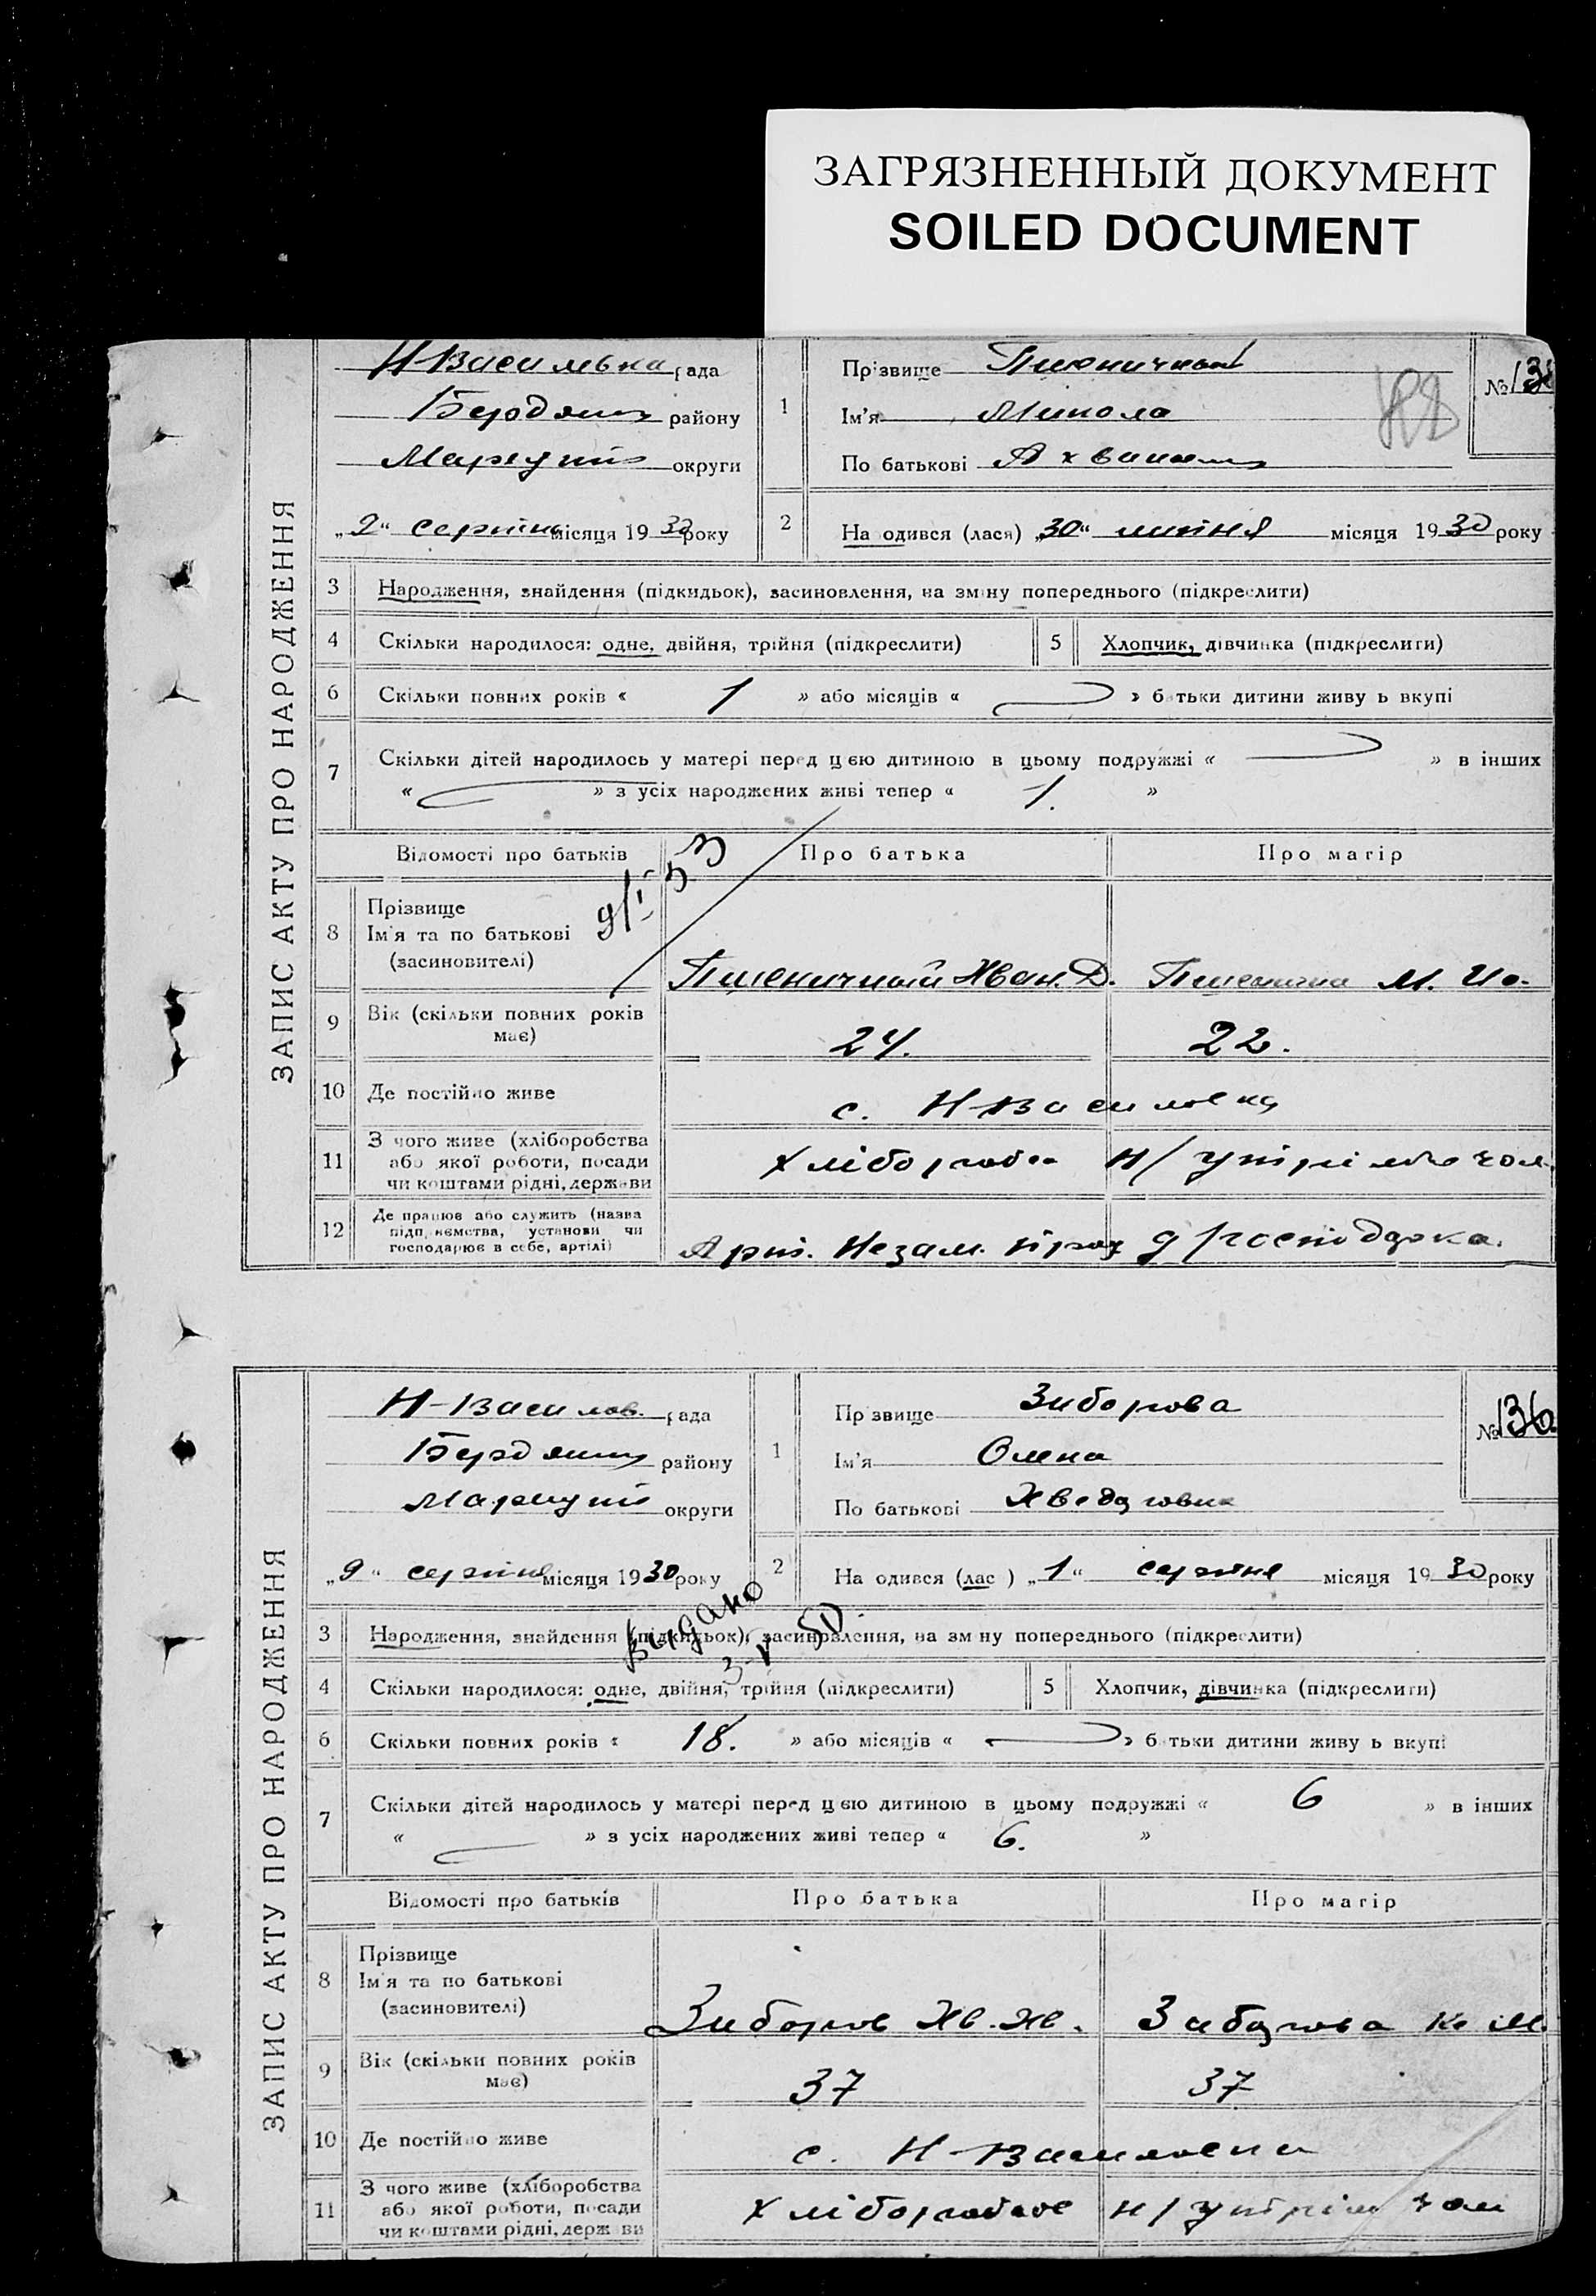 ЗАГРЯЗНЕННЫЙ ДОКУМЕНТ
SOILED DOCUMENT
ЗАПИС АКТУ ПРО НАРОДЖЕННЯ
Н-Василька рада
Бердянськ району
Маріуп округи
„2“ серпня місяця 1930 року
1
Прізвище Пшеничний
Ім'я Микола
По батькові
№
2
На одився (лася) „30“ липня місяця 1930 року
3 Народження, знайдення (підкидьок), засиновлення, на зміну попереднього (підкреслити)
4 Скільки народилося: одне, двійня, трійня (підкреслити)
5 Хлопчик, дівчинка (підкреслити)
6 Скільки повних років « 1 » або місяців « » батьки дитини живу ь вкупі
7 Скільки дітей народилось у матері перед цією дитиною в цьому подружжі « » в інших
« » з усіх народжених живі тепер « 1. »
Відомості про батьків Про батька Про матір
8 Прізвище
Ім'я та по батькові
(засиновителі)
Пшеничний Хван. Д. Пшенична М. Ио.
9 Вік (скільки повних років
має)
24. 22.
10 Де постійно живе с. Н-Василовка
11 З чого живе (хліборобства
або якої роботи, посади
чи коштами рідні, держави
хлібороб н/утрим чол.
12 Де працює або служить (назва
підприємства, установи чи
господарює в себе, артілі)
Арт. Незам. праця д/господарка.
ЗАПИС АКТУ ПРО НАРОДЖЕННЯ
Н-Василов. рада
Бердянськ району
Маріуп округи
„9“ серпня місяця 1930 року
1
Пр звище Зиборова
Ім'я Олена
По батькові Хведоровна
№136.
2
На одився (лас ) „1“ серпня місяця 1930 року
Видано
3-V 50
3 Народження, знайдення (підкидьок), засиновлення, на зм ну попереднього (підкреслити)
4 Скільки народилося: одне, двійня, трійня (підкреслити)
5 Хлопчик, дівчинка (підкреслити)
6 Скільки повних років « 18. » або місяців « » батьки дитини живу ь вкупі
7 Скільки дітей народилось у матері перед цією дитиною в цьому подружжі « 6 » в інших
« » з усіх народжених живі тепер « 6. »
Відомості про батьків Про батька Про матір
8 Прізвище
Ім'я та по батькові
(засиновителі)
Зиборов Хв. Хв. Зиборова К. М.
9 Вік (скільки повних років
має)
37 37
10 Де постійно живе с. Н-Василовка
11 З чого живе (хліборобства
або якої роботи, посади
чи коштами рідні, держ ви
хліборобство н/утрим чол